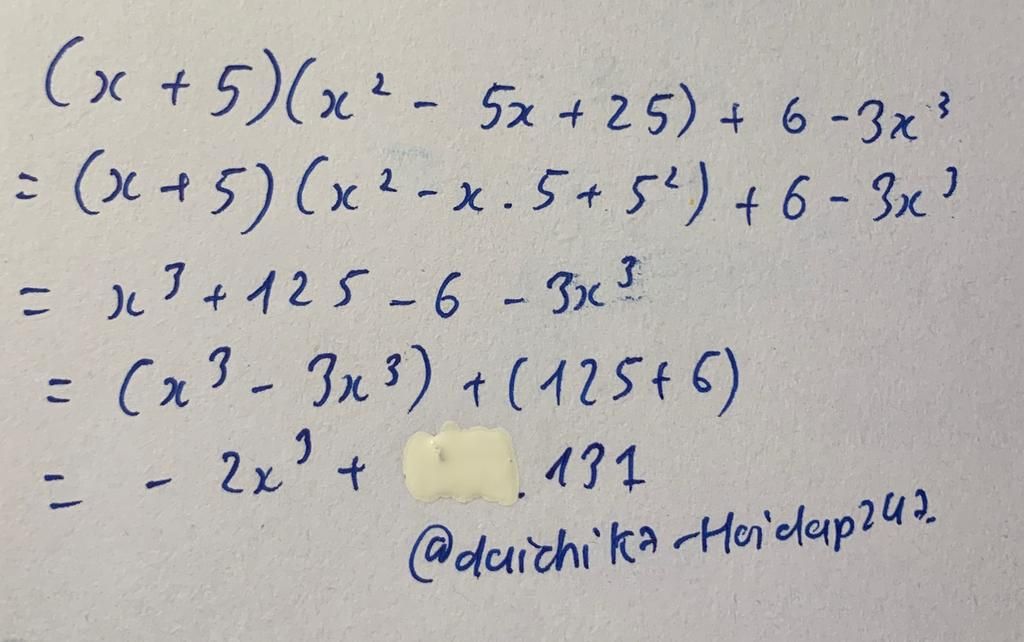 (x + 5)(x² - 5x + 25) + 6 - 3x³
= (x + 5)(x² - x . 5 + 5²) + 6 - 3x³
= x³ + 125 - 6 - 3x³
= (x³ - 3x³) + (125 + 6)
= - 2x³ + . 131
@daichika-Hoidap247.